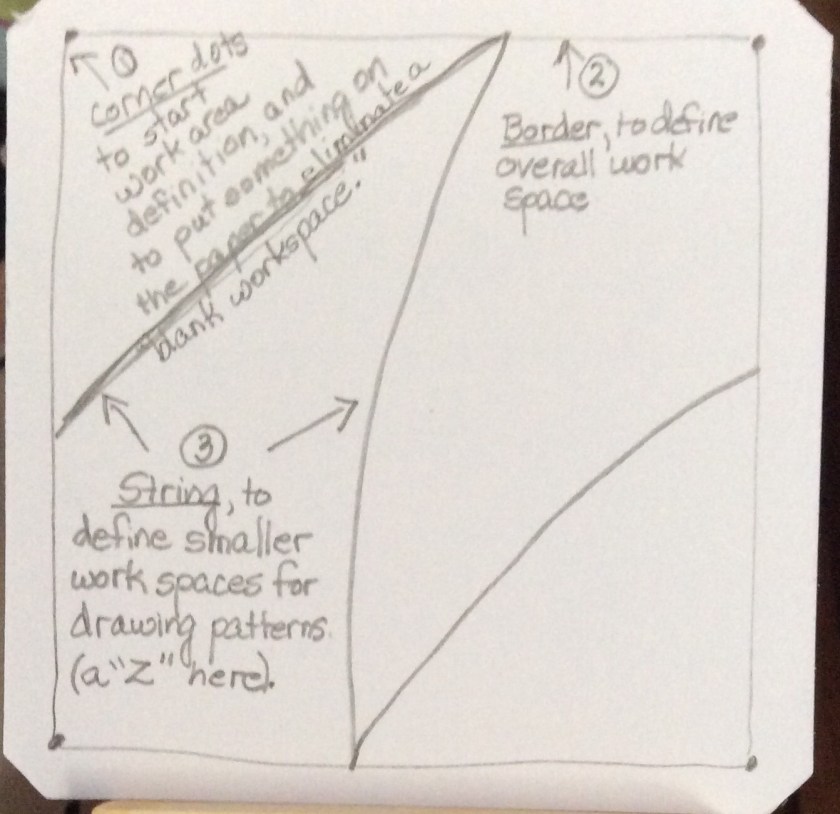 ①
corner dots
to start
work area
definition, and
to put something on
the paper to eliminate a
blank workspace."
②
Border, to define
overall work
space
③
String, to
define smaller
work spaces for
drawing patterns.
(a "Z" here).